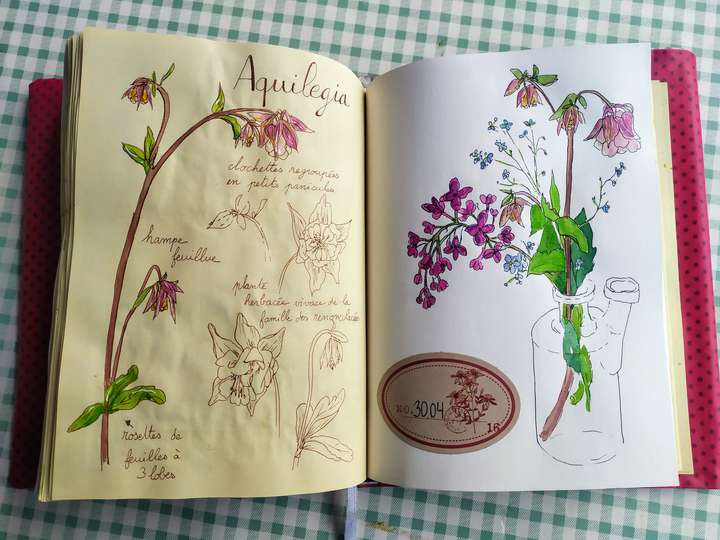 Aquilegia
clochettes regroupées
en petits panicules
hampe
feuillue
plante
herbacée vivace de la
famille des renonculacées
rosettes de
feuilles à
3 lobes
NO. 3004
16